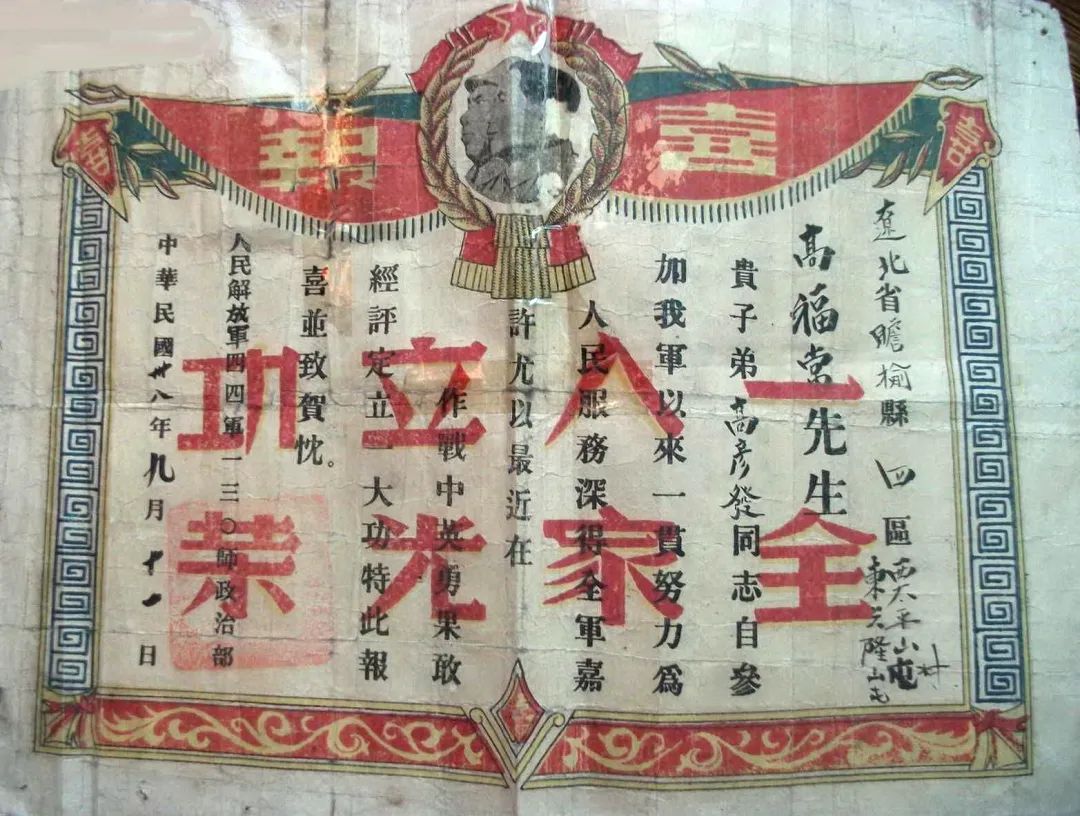 喜報
遼北省瞻榆縣四區西太平山屯村
東興隆山屯
高福崇先生
貴子弟高彥發同志自參
加我軍以來一貫努力為
人民服務深得全軍嘉
許尤以最近在
作戰中英勇果敢
經評定立一大功特此報
喜並致賀忱。
人民解放軍四四軍一三〇師政治部
中華民國卅八年九月十一日
一人立功
全家光榮
喜
喜
喜